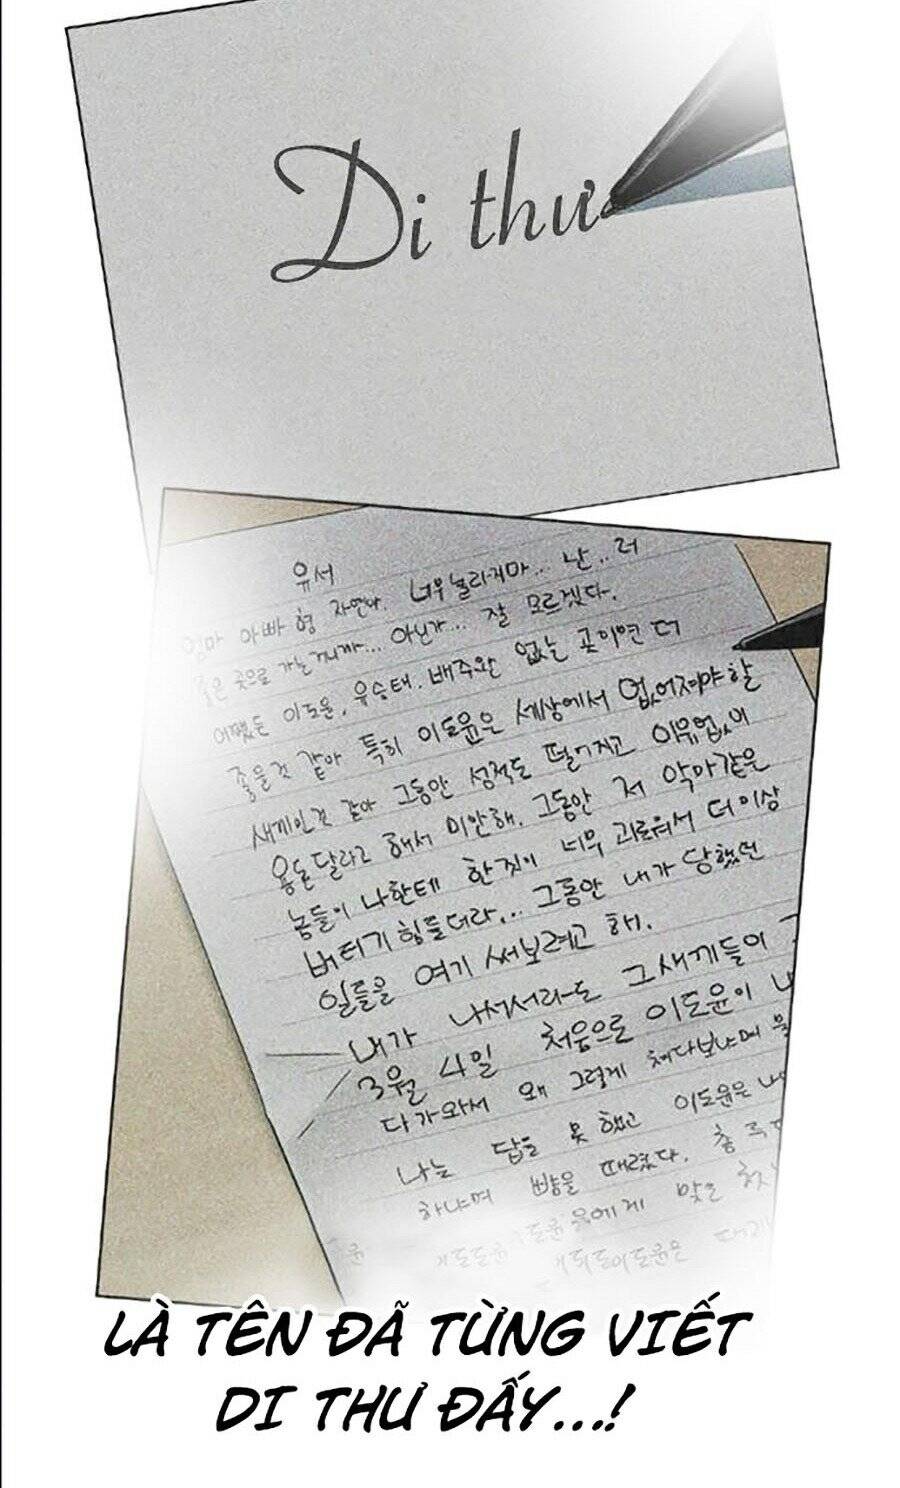 Di thư
유서
엄마 아빠 형 자연아. 너무 놀라지마... 난.. 더
좋은 곳으로 가는거니까... 아닌가... 잘 모르겠다.
어쨌든 이도윤, 유승태, 배주완 없는 곳이면 더
좋을것 같아 특히 이도윤은 세상에서 없어져야할
새끼인것 같아 그동안 성적도 떨어지고 이유없이
용돈달라고 해서 미안해. 그동안 저 악마같은
놈들이 나한테 한짓이 너무 괴로워서 더이상
버티기 힘들더라... 그동안 내가 당했던
일들을 여기 써보려고 해.
내가 나서서라도 그새끼들이
3월 4일 처음으로 이도윤이
다가와서 왜 그렇게 쳐다보냐며
나는 답을 못 했고 이도윤은
하냐며 뺨을 때렸다.
에게 맞은
LÀ TÊN ĐÃ TỪNG VIẾT
DI THƯ ĐẤY...!